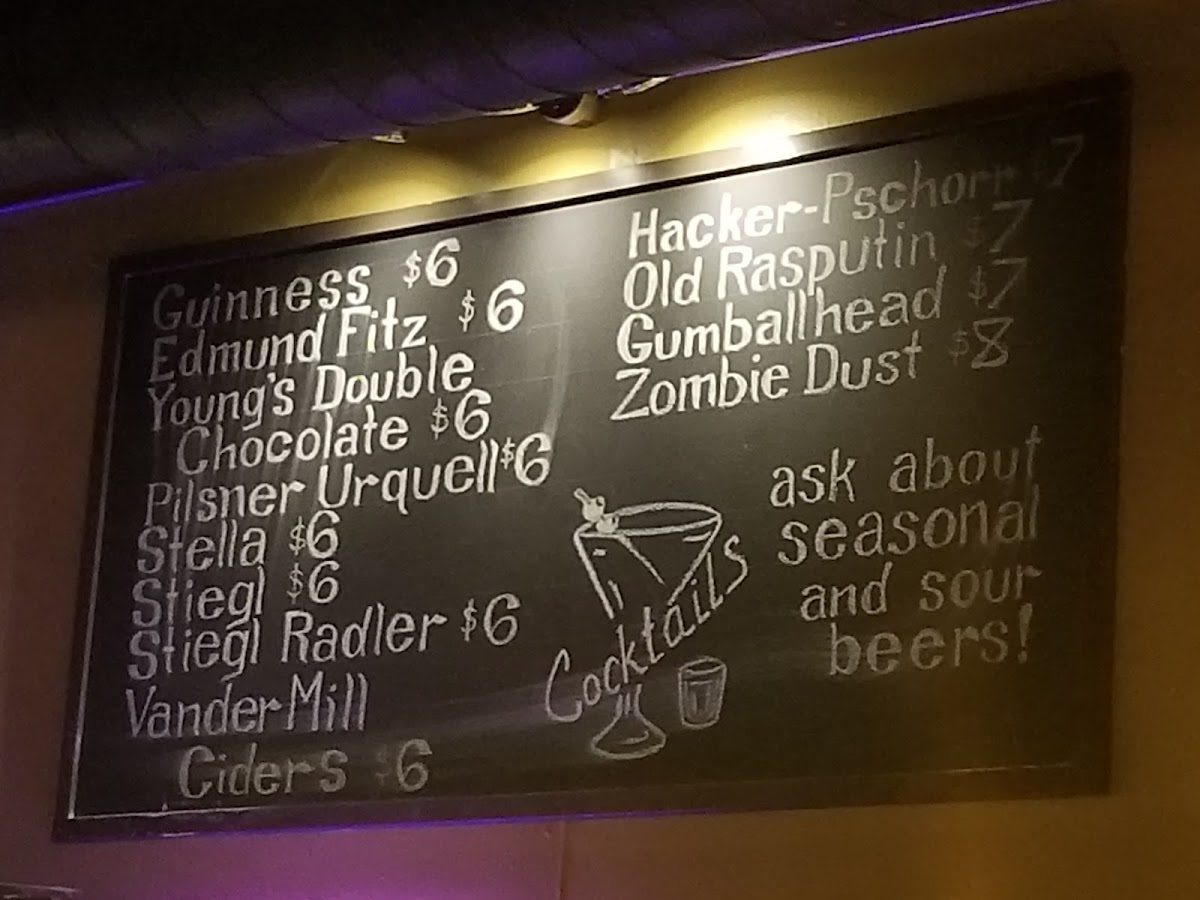 Guinness $6
Edmund Fitz $6
Young's Double
Chocolate $6
Pilsner Urquell $6
Stella $6
Stiegl $6
Stiegl Radler $6
Vander Mill
Ciders $6
Hacker-Pschorr $7
Old Rasputin $7
Gumballhead $7
Zombie Dust $8
Cocktails
ask about
seasonal
and sour
beers!